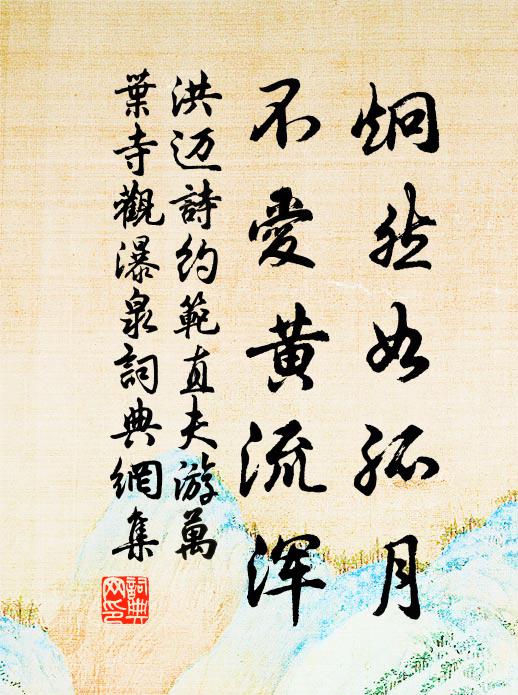 炯然如孤月
不愛黄流渾
洪迈詩約範直夫游萬
葉寺觀瀑泉詞典網集
詞典
网印